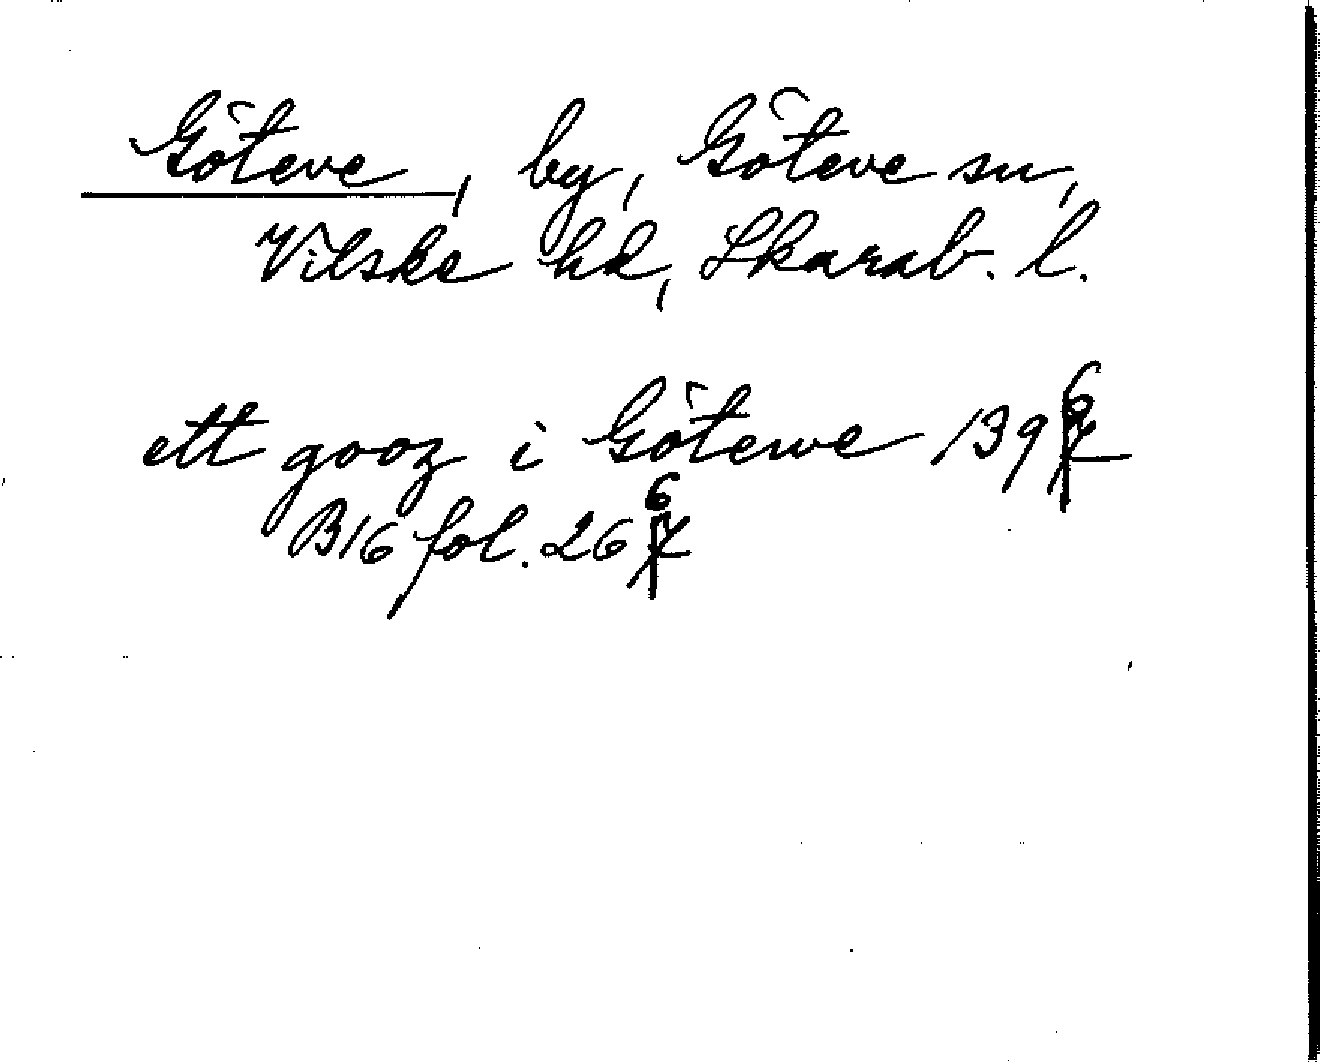 Göteve, by, Göteve sn,
Vilske hd, Skarab. l.
ett gooz i Götewe 1396
B16 fol. 266